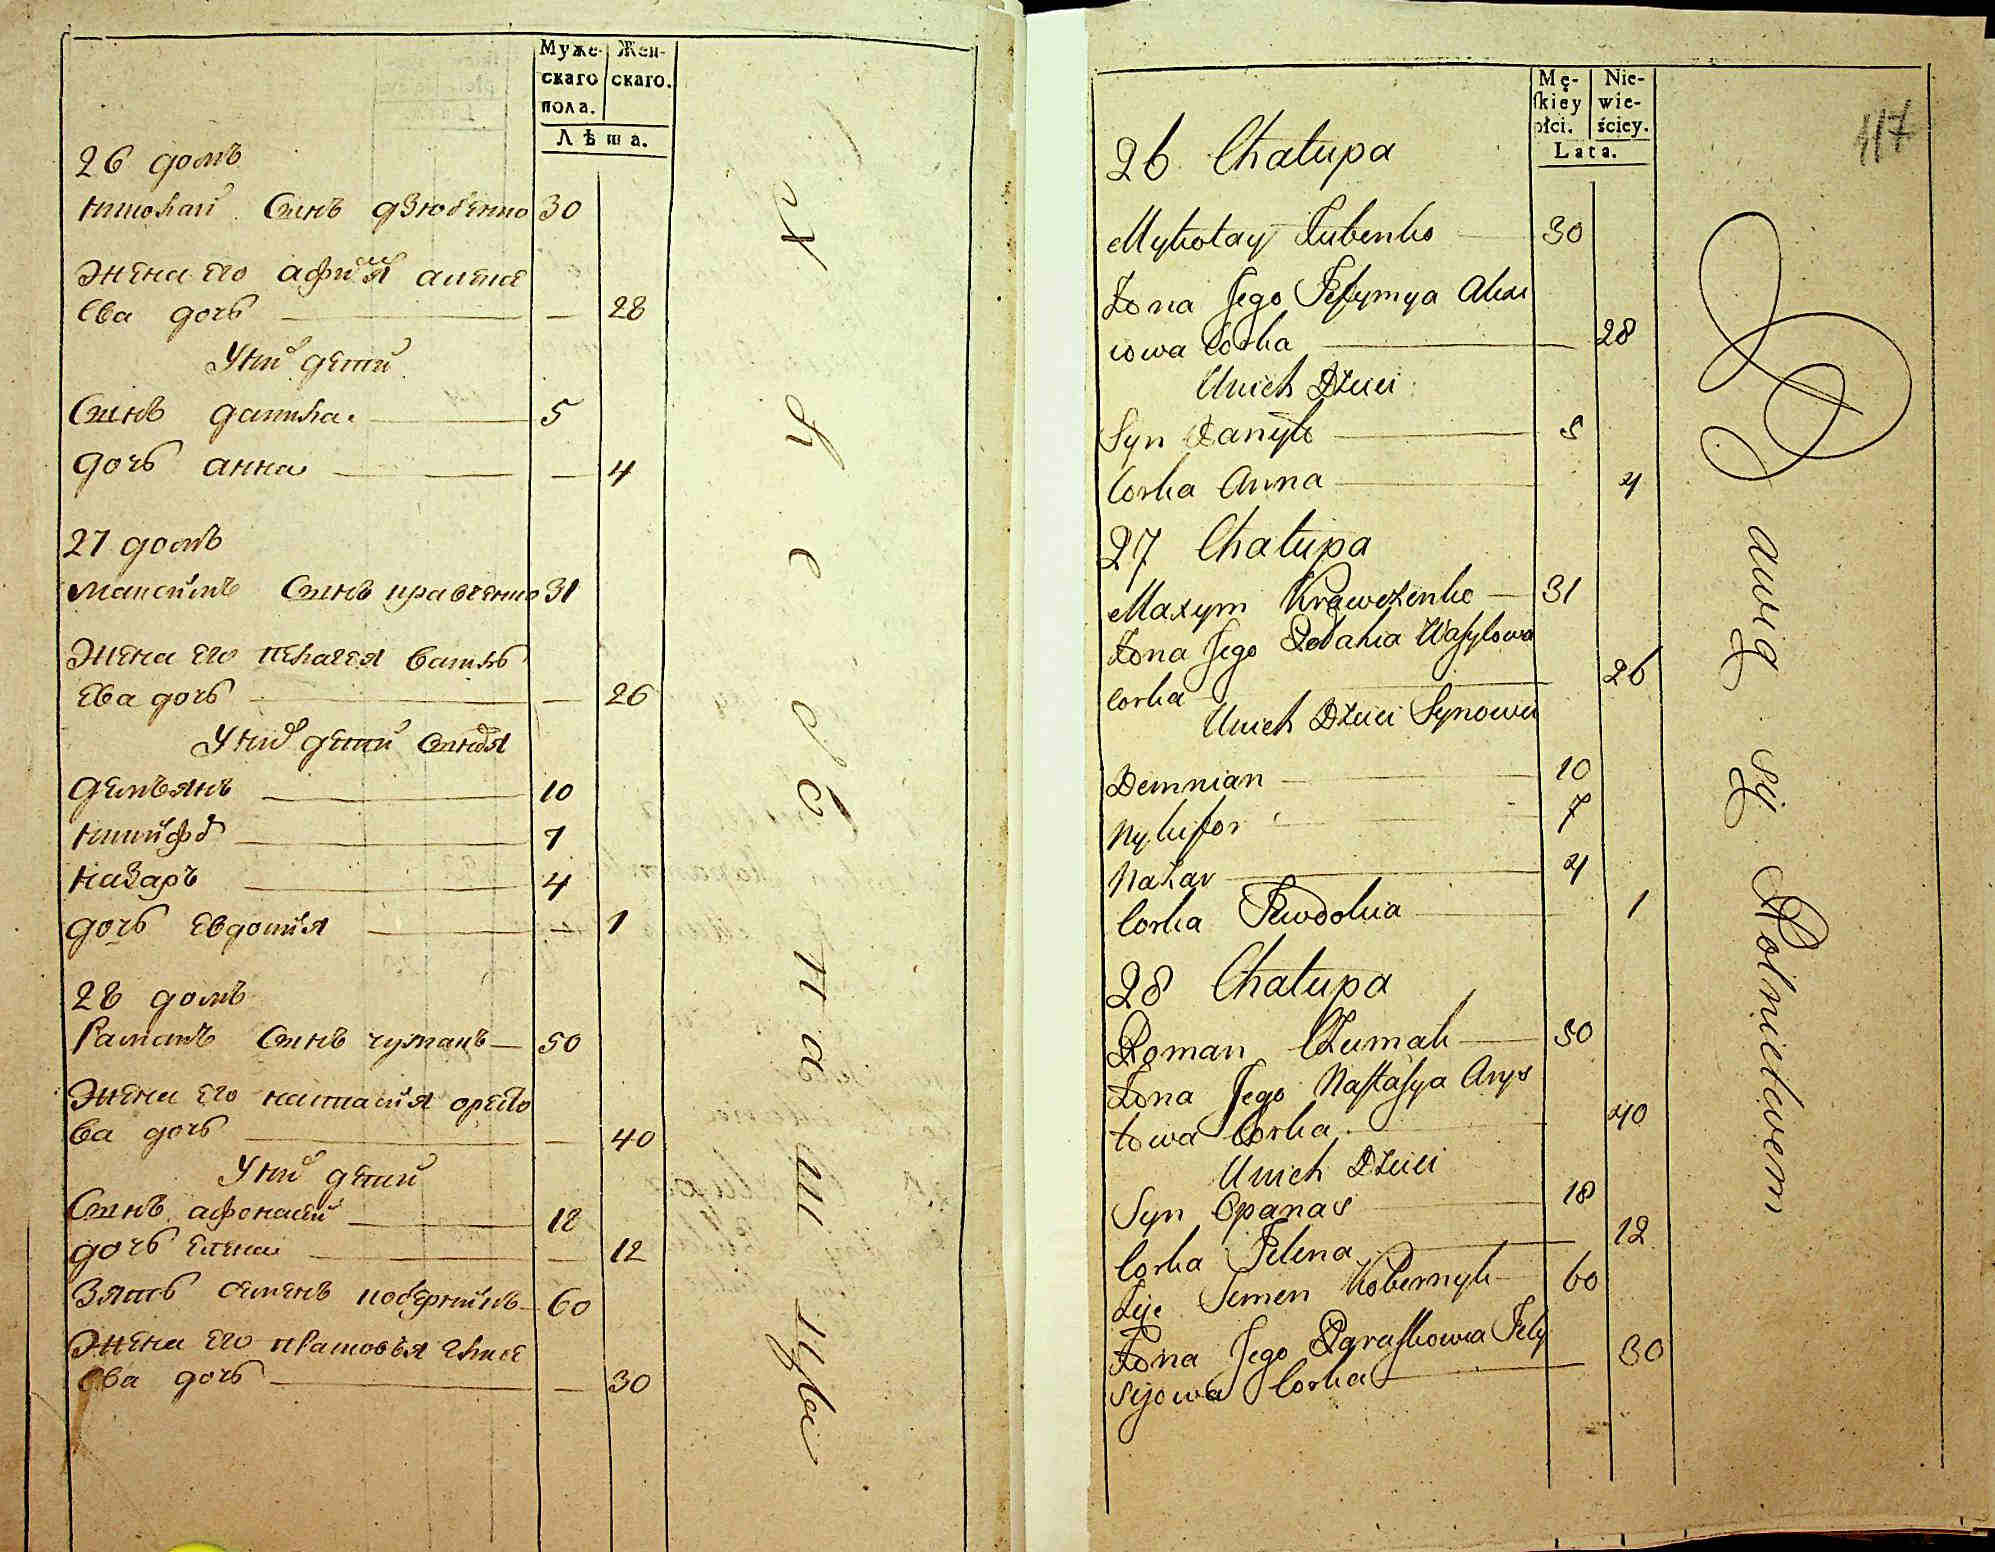 Муже-
скаго
пола.
Жен-
скаго.
Лѣта.
26 домъ
Николай Синъ дзюбенко 30
Жена его афимія алексе
ева дочь — 28
У них дети
Синъ данила 5
дочь анна — 4
27 домъ
Максимъ Синъ кравченко 31
Жена его пелагея василь
ева дочь — 26
У них дети синовя
демъянъ 10
никифо 7
назаръ 4
дочь евдокия — 1
28 домъ
Раманъ Синъ чумакъ 50
Жена его настасия
ва дочь — 40
У них дети
Синъ афонасий 18
дочь елена — 12
Зять семенъ коберникъ 60
Жена его елисе
ева дочь — 30
Хлебопашцы
Mę-
skiey
płci.
Nie-
wie-
ściey.
Lata.
117
26 Chałupa
Mykołay Zubenko 30
Żona Jego Jefymya Alexi
iowa Corka 28
Unich Dzieci
Syn Danyło 5
Corka Anna 4
27 Chałupa
Maxym Krawczenko 31
Żona Jego Pełahia Wasylowa
corka 26
Unich Dzieci Synowie
Demnian 10
Nykifor 7
Nazar 4
Corka Jewdokia 1
28 Chałupa
Roman Czumak 50
Żona Jego Nastasya Arys
towa Corka 40
Unich Dzieci
Syn Opanas 18
Corka Jelena 12
Zięć Semen Kobernyk 60
Żona Jego Paraskowia Jely
sijowa Corka 30
Bawią się Rolnictwem